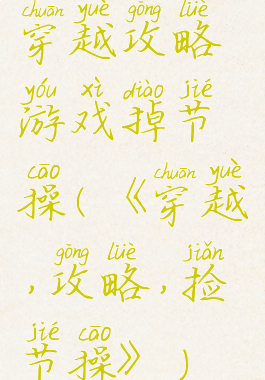 chuān yuè gōng lüè
穿越攻略
yóu xì diào jié
游戏掉节
cāo chuān yuè
操(《穿越
gōng lüè jiǎn
,攻略,捡
jié cāo
节操》)